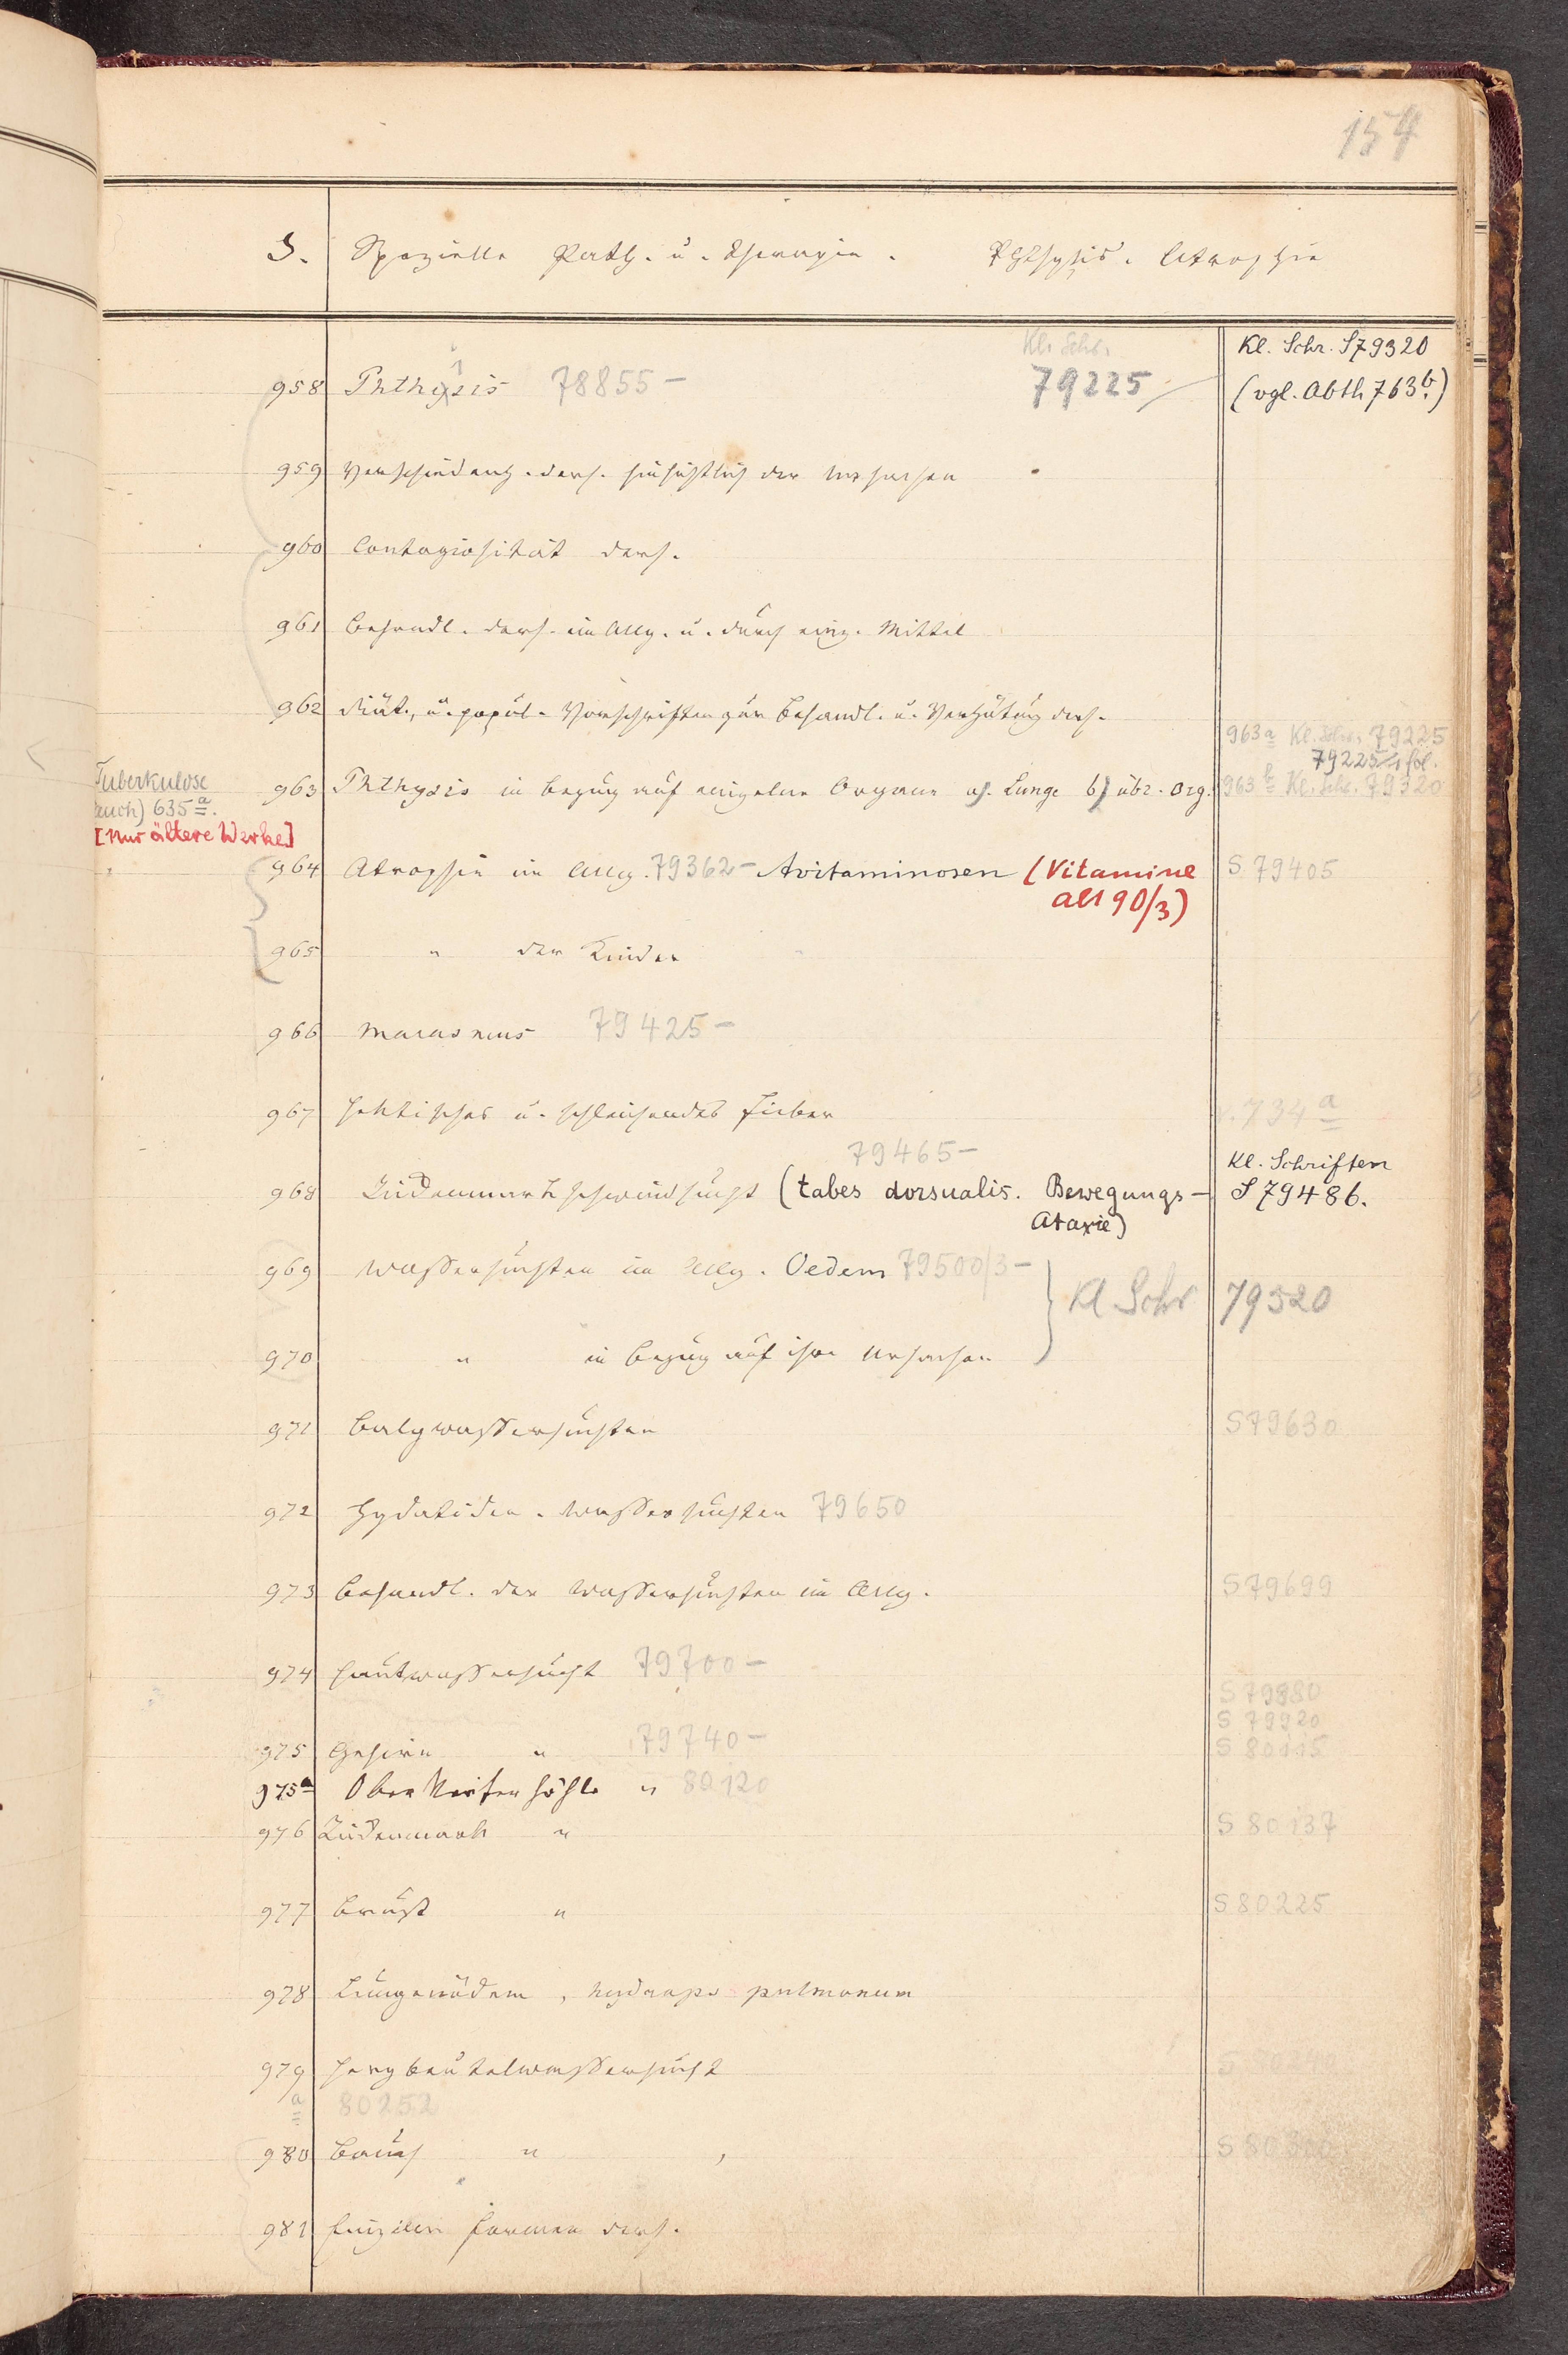 154
S. Spezielle Path. u. Therapie. Phthysis. Atrophie
Kl. Schr. Kl. Schr. S79320
958 Phthysis 78855- 79225 (vgl. Abth 763b.)
959 Verschiedenh. ders. hinsichtlich der Ursachen
960 Contagiosität ders.
961 Behandl. ders. im Allg. u. durch einz. Mittel
962 Diät., u. popül. Vorschriften zur Behandl. u. Verhütung ders.
963a Kl. Schr. 79225
79225/1 fol.
Tuberkulose
auch) 635a.
[Nur ältere Werke]
963 Phthysis in Bezug auf einzelne Organe a). Lunge b) übr. Org. 963b Kl. Schr. 79320
964 Atrophie im Allg. 79362- Avitaminosen (Vitamine S 79405
alt 90/3)
965 " der Kinder
966 Marasmus 79425-
967 Hektisches u. schleichendes Fieber v. 734a
79465- Kl. Schriften
968 Rückenmarkschwindsucht (tabes dorsualis. Bewegungs- S 79486.
Ataxie)
969 Wassersuchten im Allg. Oedem 79500/3-
Kl Schr 79520
970 " in Bezug auf ihre Ursachen
971 Balgwassersuchten S79630
972 Hydatiden-Wassersuchten 79650
973 Behandl. der Wassersuchten im Allg. S79699
974 Hautwassersucht 79700-
S 79880
S 79920
975 Gehirn " 79740- S 80115
975a Oberkieferhöhle " 80120
976 Rückenmark " S 80137
977 Brust " S 80225
978 Lungenödem, hydrops pulmonum
979 Herzbeutelwassersucht
a 80252
980 Bauch "
981 Einzelne Formen ders.